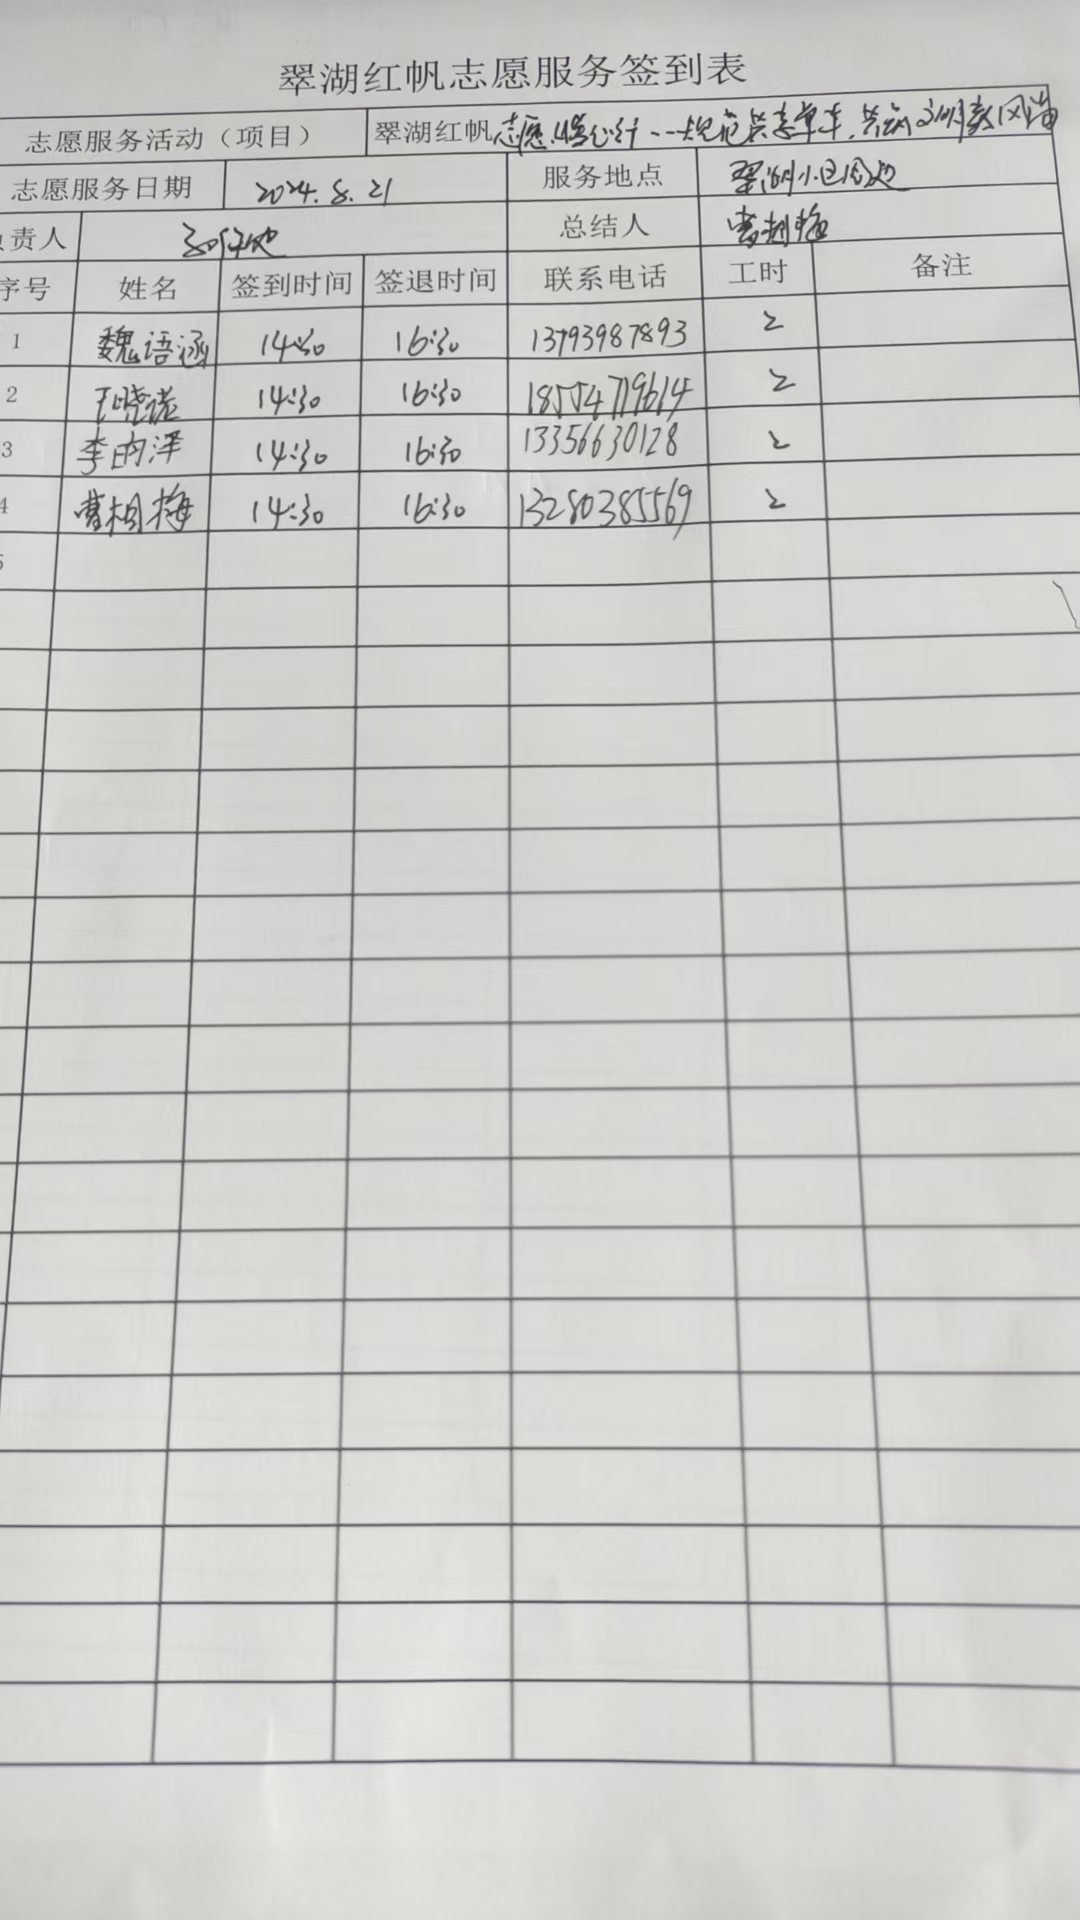 翠湖红帆志愿服务签到表
志愿服务活动（项目） 翠湖红帆志愿 规范共享单车，共 文明新风尚
志愿服务日期 2024.8.21 服务地点 翠湖小区周边
负责人 总结人 曹相梅
序号 姓名 签到时间 签退时间 联系电话 工时 备注
1 魏语涵 14:30 16:30 13793987893 2
2 王晓诺 14:30 16:30 18554719614 2
3 李昀泽 14:30 16:30 13356630128 2
4 曹相梅 14:30 16:30 13280385569 2
5